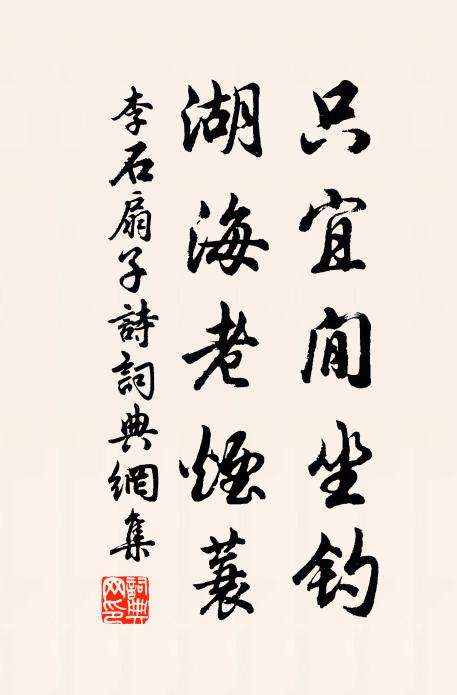 只宜閒坐釣
湖海老煙蓑
李石扇子詩詞典網集
詞典
网印